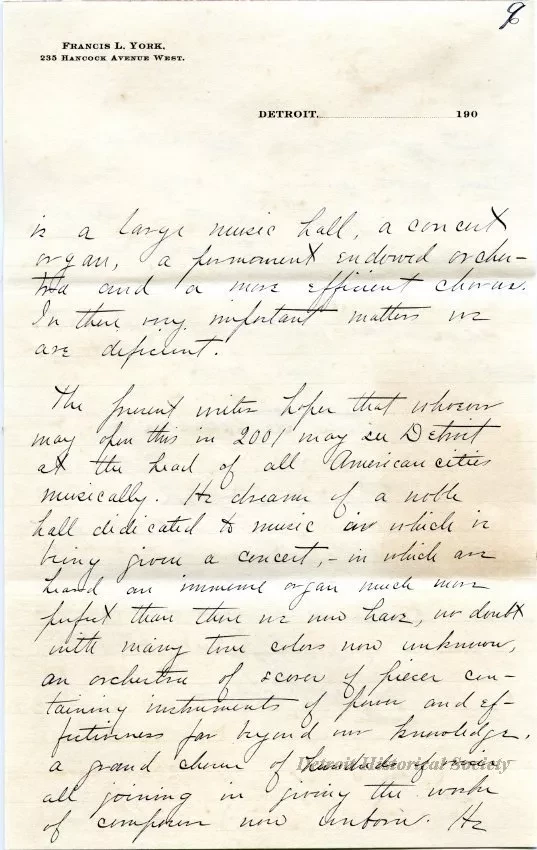 9
FRANCIS L. YORK,
235 HANCOCK AVENUE WEST.
DETROIT, 190
is a large music hall, a concert
organ, a permonent endowed orches-
tra and a more efficient chorus.
In these very important matters we
are deficient.
The present writer hopes that whoever
may open this in 2001 may see Detroit
at the head of all American cities
musically. He dreams of a noble
hall dedicated to music in which is
being given a concert, - in which are
heard an immense organ much more
perfect than those we now have, no doubt
with many tone colors now unknown,
an orchestra of scores of pieces con-
taining instruments of power and ef-
fectiveness far beyond our knowledge,
a grand chorus of hundreds of voices
Detroit Historical Society
all joining in giving the works
of composers now unborn. He